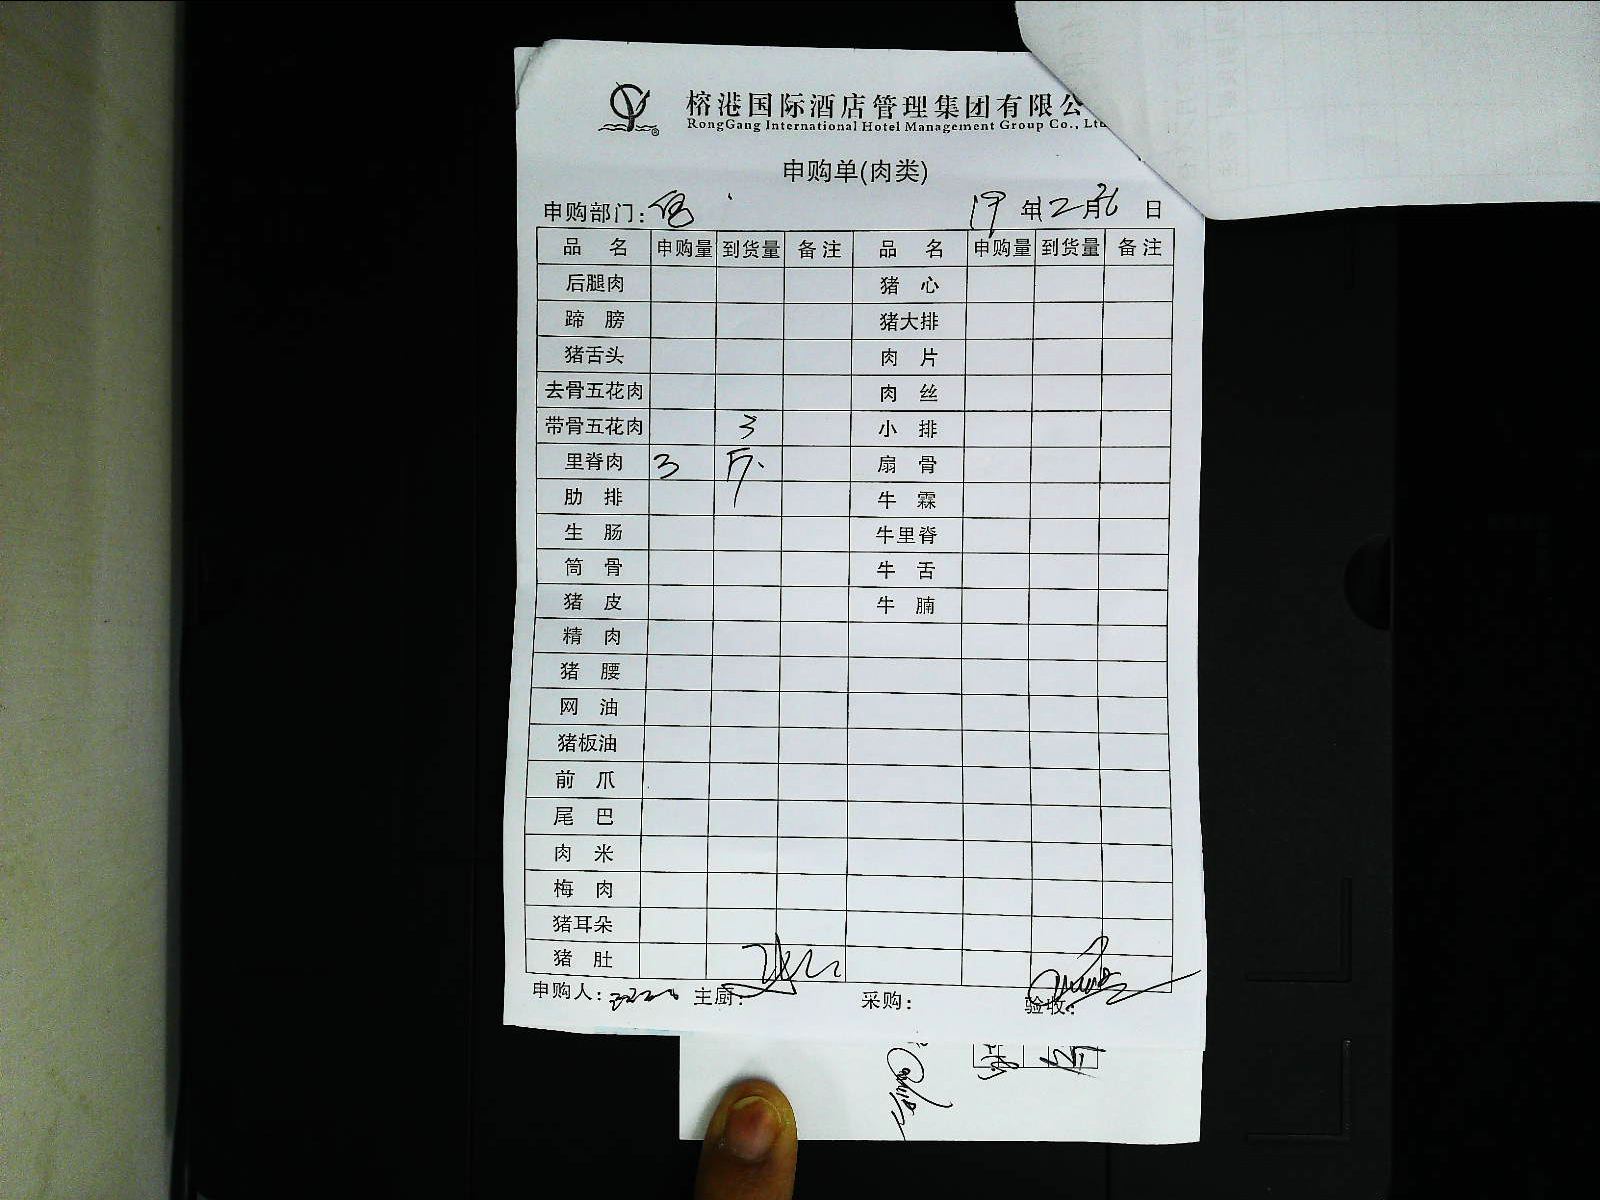 榕港国际酒店管理集团有限公
RongGang International Hotel Management Group Co., Lt
申购单(肉类)
申购部门： 19 年12月26日
品名 申购量 到货量 备注 品名 申购量 到货量 备注
后腿肉 猪心
蹄膀 猪大排
猪舌头 肉片
去骨五花肉 肉丝
带骨五花肉 3 小排
里脊肉 3 斤 扇骨
肋排 牛霖
生肠 牛里脊
筒骨 牛舌
猪皮 牛腩
精肉
猪腰
网油
猪板油
前爪
尾巴
肉米
梅肉
猪耳朵
猪肚
申购人： 主厨： 采购： 验收：